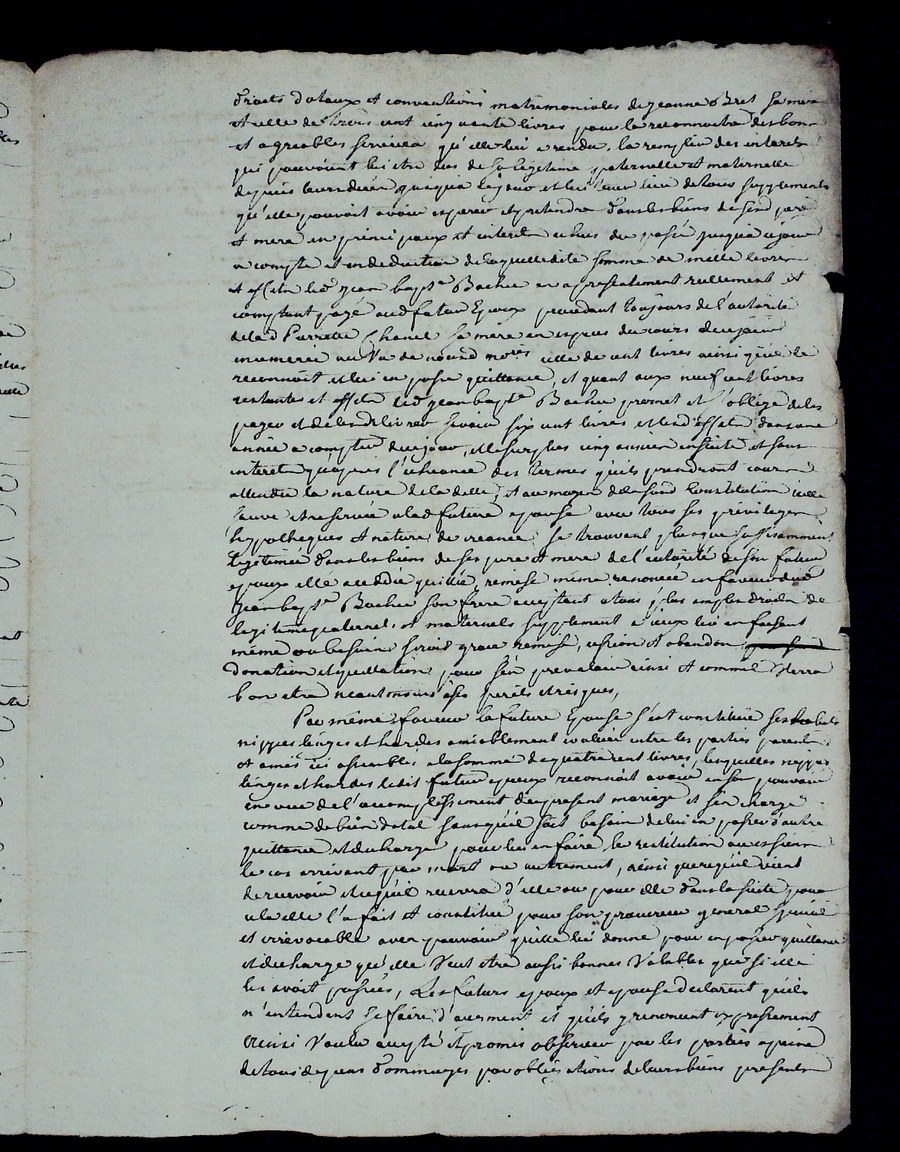 droits dotaux et conventions matrimoniales de jeanne Bret sa mere
et celle de trois cent cinquante livres pour la reconnoitre des bons
et agreables services qu'elle lui a rendu, la remplir des interets
qui pouvoient lui etre dus de sa legitime paternelle et maternelle
depuis leur deces jusqua ce jour et lui tenir lieu de tous supplements
qu'elle pouvoit avoir esperer et pretendre dans les biens de sesd pere
et mere en principaux et interets echus du passé jusqua ce jour
a compte et en deduction de laquelle dite somme de mille livres
et effets led jean bapte Bachu en a presentement reellement et
comptant payé aud futur Epoux procedant toujours de l'autorité
de lad Pierrette Chanel sa mere en especes de cours de ce jour
numerée au vu de nousd nores celle de cent livres ainsi qu'il le
reconnoit et lui en passe quittance, et quant aux neuf cent livres
restantes et effets led jean bapte Bachu promet et s'oblige de les
payer et de les delivrer savoir six cent livres et lesd effets dans une
année a compter de ce jour, et le surplus cinq ans ensuite et sans
interet qu'apres l'echeance des termes qu'ils prendront cours
attendu la nature de la dette, et au moyen de lasd Constitution icelle
sauve et reservée a lad future epouse avec tous ses privileges
hypotheques et nature de creance, se trouvant plus que suffisamment
legitimée dans les biens de ses pere et mere de l'autorité de son futur
epoux elle a cedé quitté, remise même renoncé en faveur dud
jean bapte Bachu son frere acceptant a tous plus amples droits de
legitime paternels et maternels supplement d'iceux lui en faisant
même ou besoin seroit grace remise, cession et abandon
donation et quittation pour s'en prevaloir ainsi et comme il verra
bon etre neantmoins a ses perils et risques,
Par même faveur la future Epouse s'est constituée ses habits
nippes linges et hardes amiablement evaluée entre les parties parents
et amis ici assemblés a la somme de quatre cent livres, lesquelles nippes
linges et hardes ledit futur epoux reconnoit avoir en son pouvoir
en vue de l'accomplissement du present mariage et s'en charge
comme de bien dotal sans qu'il soit besoin de lui en passer d'autre
quittance et decharge pour lui en faire la restitution ou es siens
le cas arrivant par mort ou autrement, ainsi que ce qu'il vient
de recevoir et ce qu'il recevra d'elle ou pour elle dans la suite pour
a laelle l'a fait et constitué pour son procureur general special
et irrevocable avec pouvoir qu'elle lui donne pour en passer quittance
et decharge qu'elle veut etre aussi bonnes valables que si elle
les avoit passées, Les futurs epoux et epouse declarent qu'ils
n'entendent se faire d'augment et qu'ils y renoncent expressement
Ainsi voulu accepté et promis observer par les parties a peine
de tous depens dommages par obligations de leurs biens presents